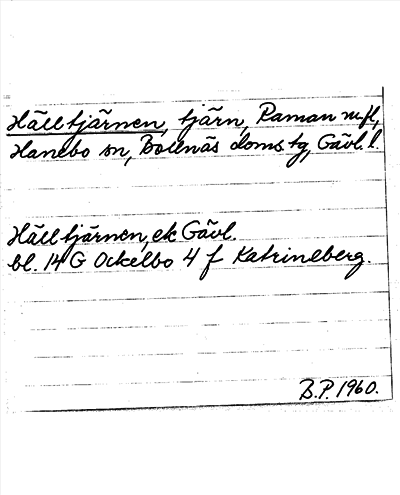 Hälltjärnen, tjärn, Raman m.fl,
Hanebo sn, Bollnäs doms. tg, Gävl. l.
Hälltjärnen, ek Gävl.
bl. 14 G Ockelbo 4 f Katrineberg.
B.P. 1960.